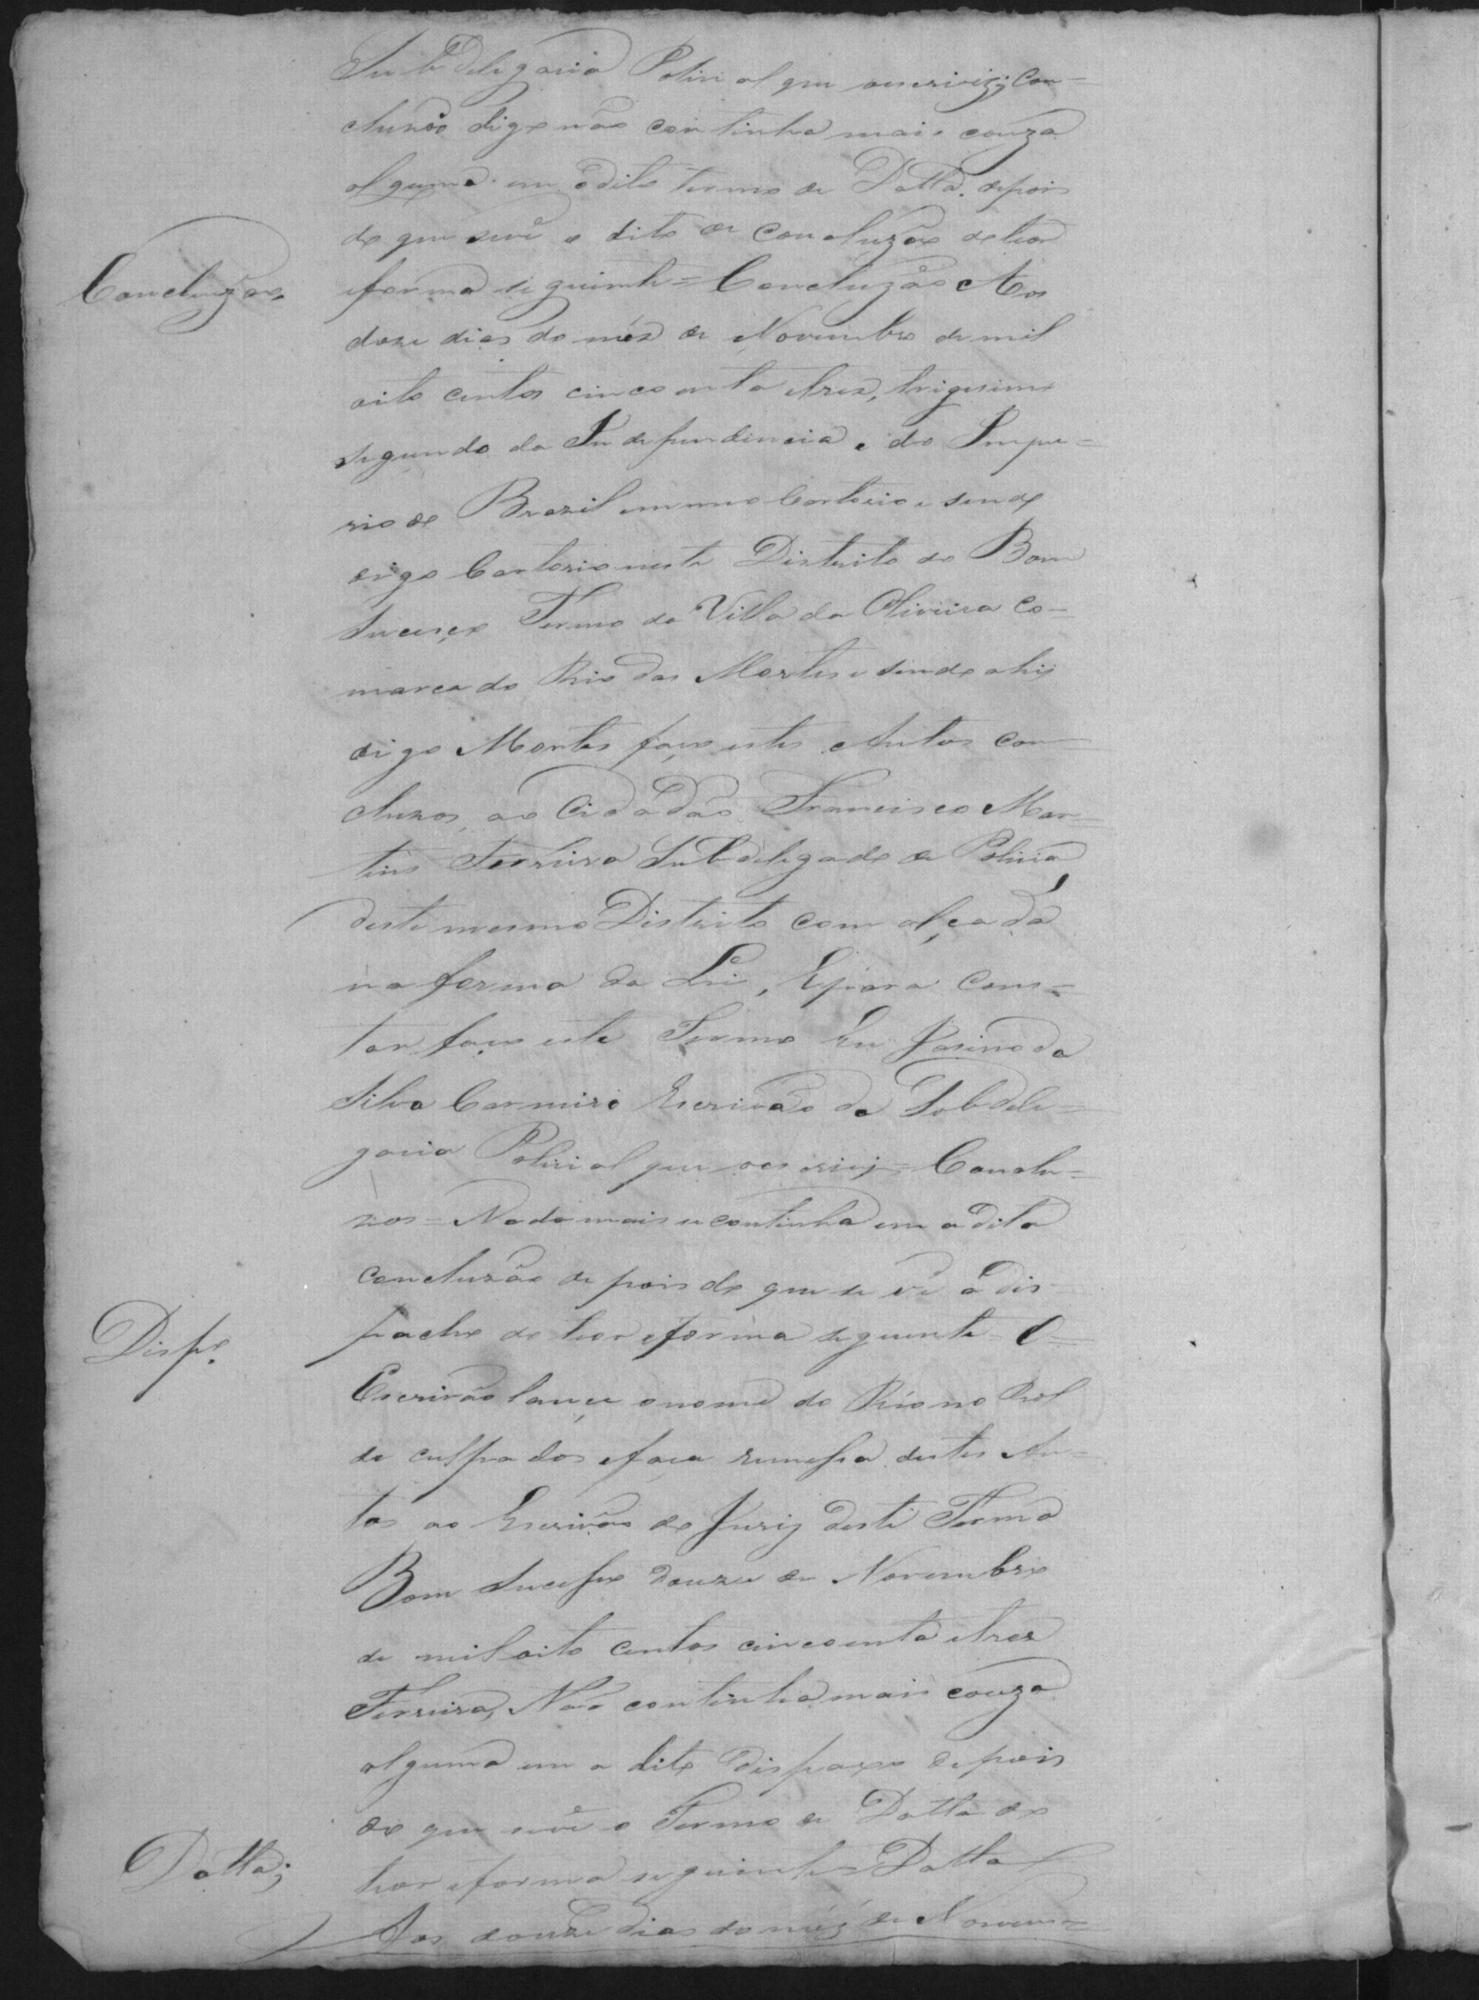 Sub Delegacia Policial que oescrivizj Con=
cluzão digo não continha mais couza
alguma em o dito termo de Datta. depois
do que sevê o dito de Concluzão do thior
eforma seguinte = Concluzão Aos
Concluzão
doze dias do mês de Novembro de mil
oito centos cincoenta etres, trigesimo
segundo da Independencia e do Impe=
rio do Brazil em meo Cartorio e sendo
digo Cartorio neste Distrito do Bom
Sucesço Termo da Villa da Oliveira Co=
marca do Rio das Mortes e sendo ahi
digo Mortes faço estes Autos con
cluzos ao Cidadão Francisco Mar=
tins Ferreira Subdelegado de Policia
deste mesmo Distrito com alçada
na forma da Lei, Epara Cons=
tar faço este Termo Eu Jacino da
Silva Carneiro Escrivão da Sobdele=
gacia Policial que oescrivj = Conclu=
zos = Nada mais se continha em a dita
concluzão de pois do que se vê o dis
pacho do thior eforma seguinte = O =
Disp.º
Escrivão lance o nome do Réo no Rol
de culpados efaça remessa destes Au=
tos ao Escrivão do Juriz deste Termo
Bom Sucesso douze de Novembro
de mil oito centos cincoenta etres
Ferreira, Não continha mais couza
alguma em o dito dispaxo depois
do que sevê o Termo de Datta do
thior eforma seguinte = Datta
Datta;
Aos douze dias do mêz de Novem=